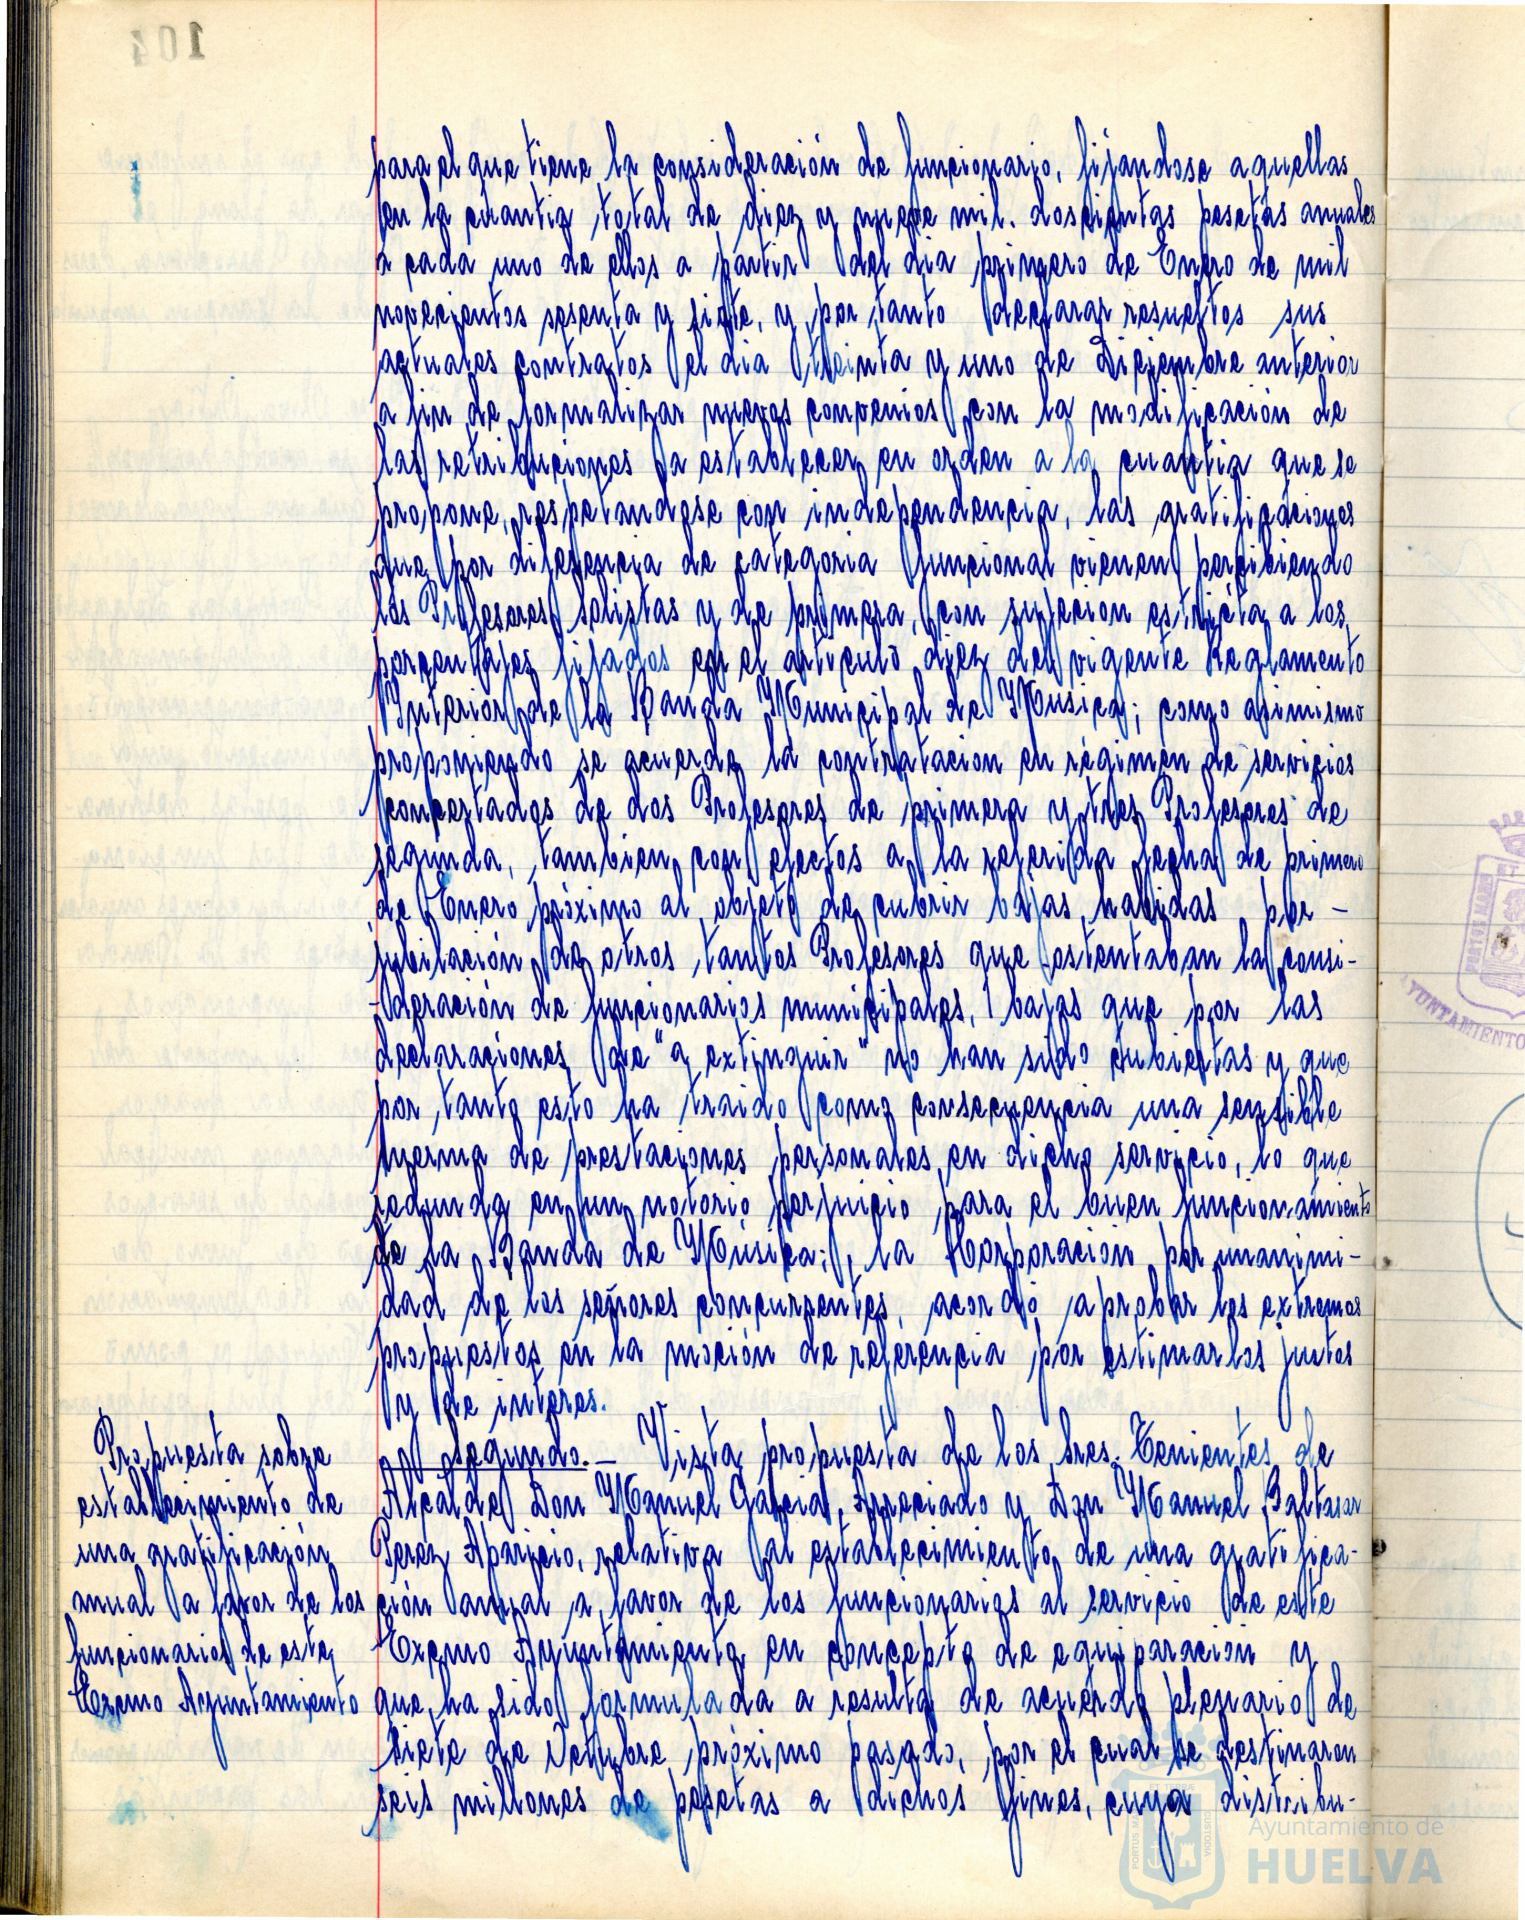 para el que tiene la consideración de funcionario, fijandose aquellas
en la cuantia total de diez y nueve mil. doscientas pesetas anuales
a cada uno de ellos a partir del dia primero de Enero de mil
novecientos sesenta y siete, y por tanto declarar resueltos sus
actuales contratos el dia treinta y uno de Diciembre anterior
a fin de formalizar nuevos convenios con la modificación de
las retribuciones a establecer en orden a la cuantia que se
propone, respetandose con independencia, las gratificaciones
que por diferencia de categoria funcional vienen percibiendo
los Profesores solistas y de primera, con sujeción estricta a los
porcentajes fijados en el articulo diez del vigente Reglamento
Interior de la Banda Municipal de Musica; como asimismo
proponiendo se acuerde la contratacion en régimen de servicios
concertados de dos Profesores de primera y tres Profesores de
segunda, tambien con efectos a la referida fecha de primero
de Enero próximo al objeto de cubrir bajas habidas por -
jubilación de otros tantos Profesores que ostentaban la consi-
-deración de funcionarios municipales, bajas que por las
declaraciones de "a extinguir" no han sido cubiertas y que
por tanto esto ha traido como consecuencia una sensible
merma de prestaciones personales en dicho servicio, lo que
redunda en un notorio perjuicio para el buen funcionamiento
de la Banda de Música; la Corporación por unanimi-
dad de los señores concurrentes, acordó aprobar los extremos
propuestos en la moción de referencia por estimarlos justos
y de interes.
Propuesta sobre
establecimiento de
una gratificación
anual a favor de los
funcionarios de este
Excmo Ayuntamiento
Segundo. - Vista propuesta de los Sres. Tenientes de
Alcalde Don Manuel Garcia Apreciado y Don Manuel Baltasar
Perez Aparicio, relativa al establecimiento de una gratifica-
ción anual a favor de los funcionarios al servicio de este
Excmo Ayuntamiento en concepto de equiparación y
que ha sido formulada a resulta de acuerdo plenario de
siete de Octubre próximo pasado, por el cual se destinaron
seis millones de pesetas a dichos fines, cuya distribu-
104
AYUNTAMIENTO
PORTUS MARIS
Ayuntamiento de
HUELVA